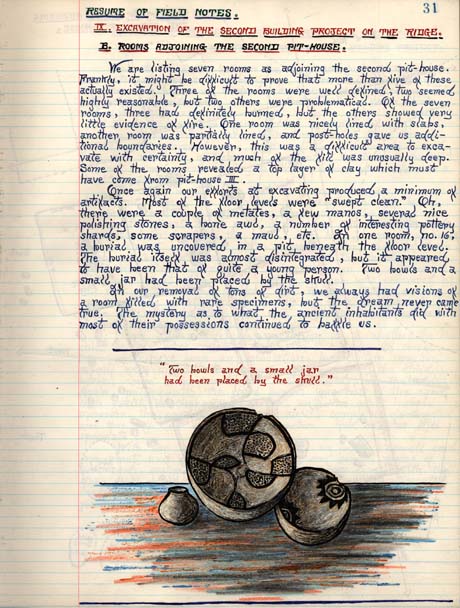 31
RESUME OF FIELD NOTES.
IX. EXCAVATION OF THE SECOND BUILDING PROJECT ON THE RIDGE.
B. ROOMS ADJOINING THE SECOND PIT-HOUSE.
We are listing seven rooms as adjoining the second pit-house.
Frankly, it might be difficult to prove that more than five of these
actually existed. Three of the rooms were well defined, two seemed
highly reasonable, but two others were problematical. Of the seven
rooms, three had definitely burned, but the others showed very
little evidence of fire. One room was nicely lined with slabs,
another room was partially lined, and post-holes gave us addi-
tional boundaries. However, this was a difficult area to exca-
vate with certainty, and much of the fill was unusually deep.
Some of the rooms revealed a top layer of clay which must
have come from pit-house III.
Once again our efforts at excavating produced a minimum of
artifacts. Most of the floor levels were "swept clean." Oh,
there were a couple of metates, a few manos, several nice
polishing stones, a bone awl, a number of interesting pottery
shards, some scrapers, a maul, etc. In one room, no. 16,
a burial was uncovered in a pit, beneath the floor level.
The burial itself was almost disintegrated, but it appeared
to have been that of quite a young person. Two bowls and a
small jar had been placed by the skull.
In our removal of tons of dirt, we always had visions of
a room filled with rare specimens, but the dream never came
true. The mystery as to what the ancient inhabitants did with
most of their possessions continued to baffle us.
"Two bowls and a small jar
had been placed by the skull."